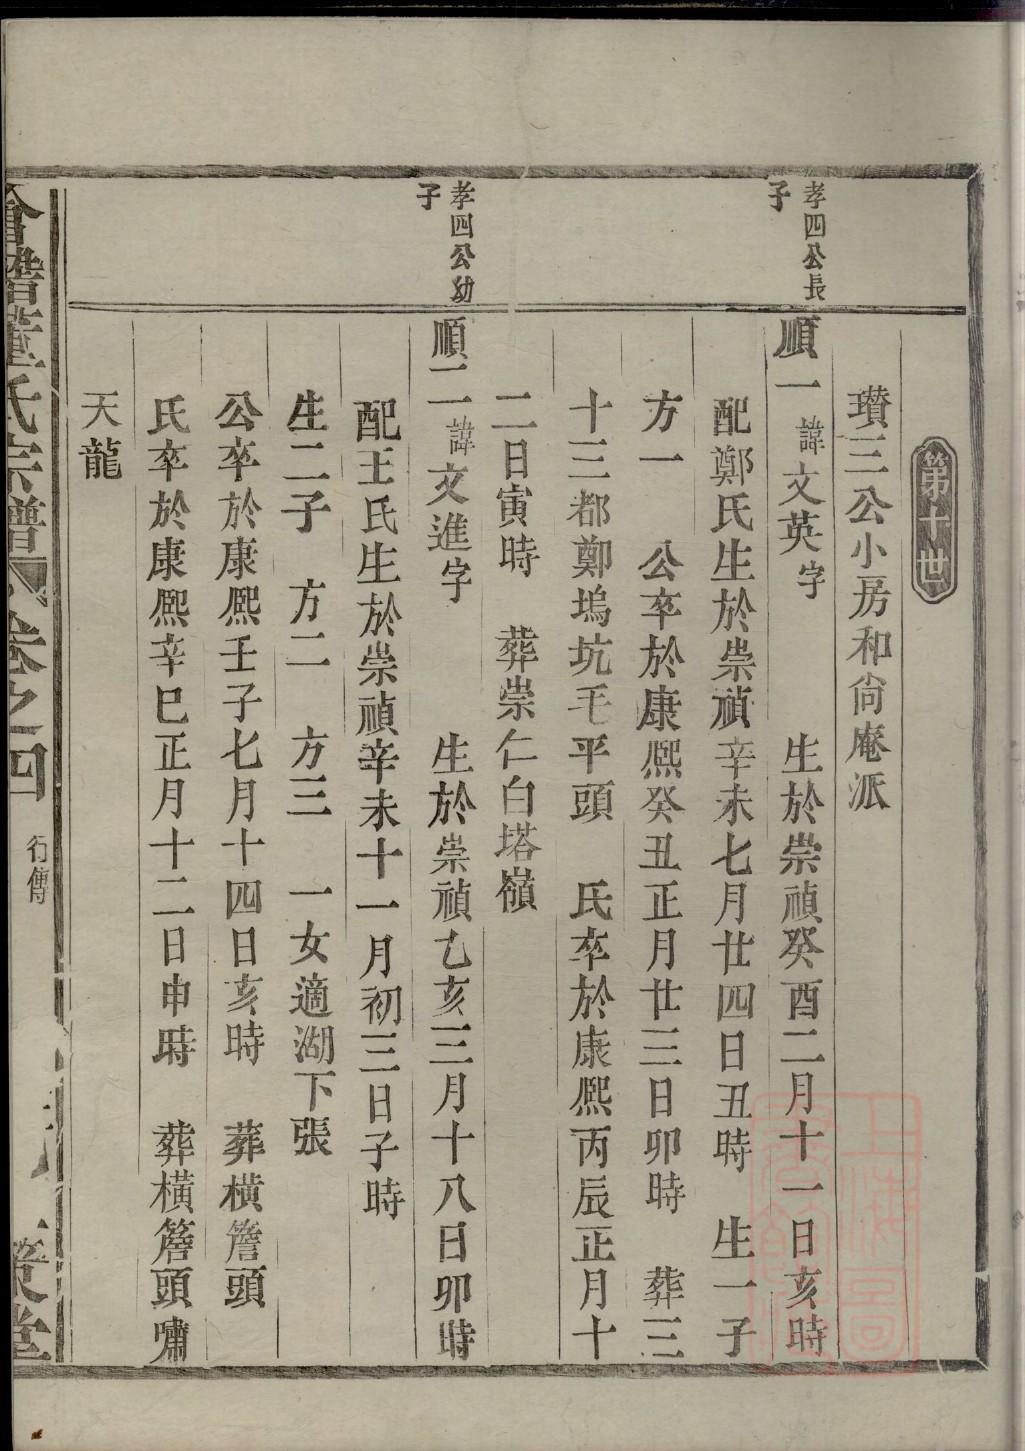 第十世
瓚三公小房和尙庵派
孝四公長
子
順一諱文英字 生於崇禎癸酉二月十一日亥時
配鄭氏生於崇禎辛未七月廿四日丑時 生一子
方一 公卒於康熙癸丑正月廿三日卯時 葬三
十三都鄭塢坑毛平頭 氏卒於康熙丙辰正月十
二日寅時 葬崇仁白塔嶺
孝四公幼
子
順二諱文進字 生於崇禎乙亥三月十八日卯時
配王氏生於崇禎辛未十一月初三日子時
生二子 方二 方三 一女適湖下張
公卒於康熙壬子七月十四日亥時 葬橫簷頭
氏卒於康熙辛巳正月十二日申時 葬橫簷頭嘯
天龍
會稽董氏宗譜 卷之四 行傳
上海圖
書館藏